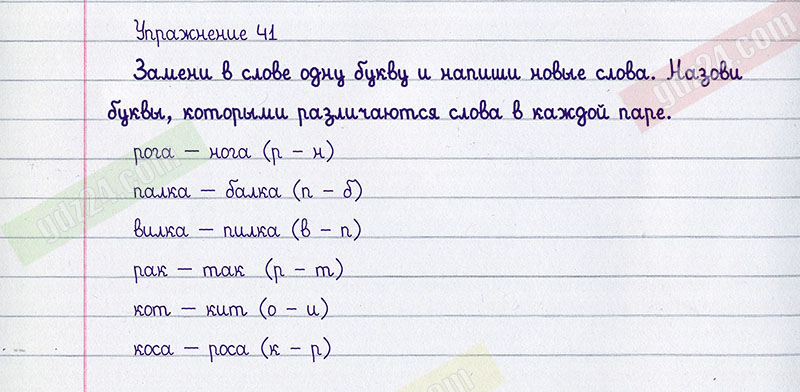 Упражнение 41
Замени в слове одну букву и напиши новые слова. Назови
буквы, которыми различаются слова в каждой паре.
рога – нога (р – н)
палка – балка (п – б)
вилка – пилка (в – п)
рак – так (р – т)
кот – кит (о – и)
коса – роса (к – р)
gdz24.com
gdz24.com